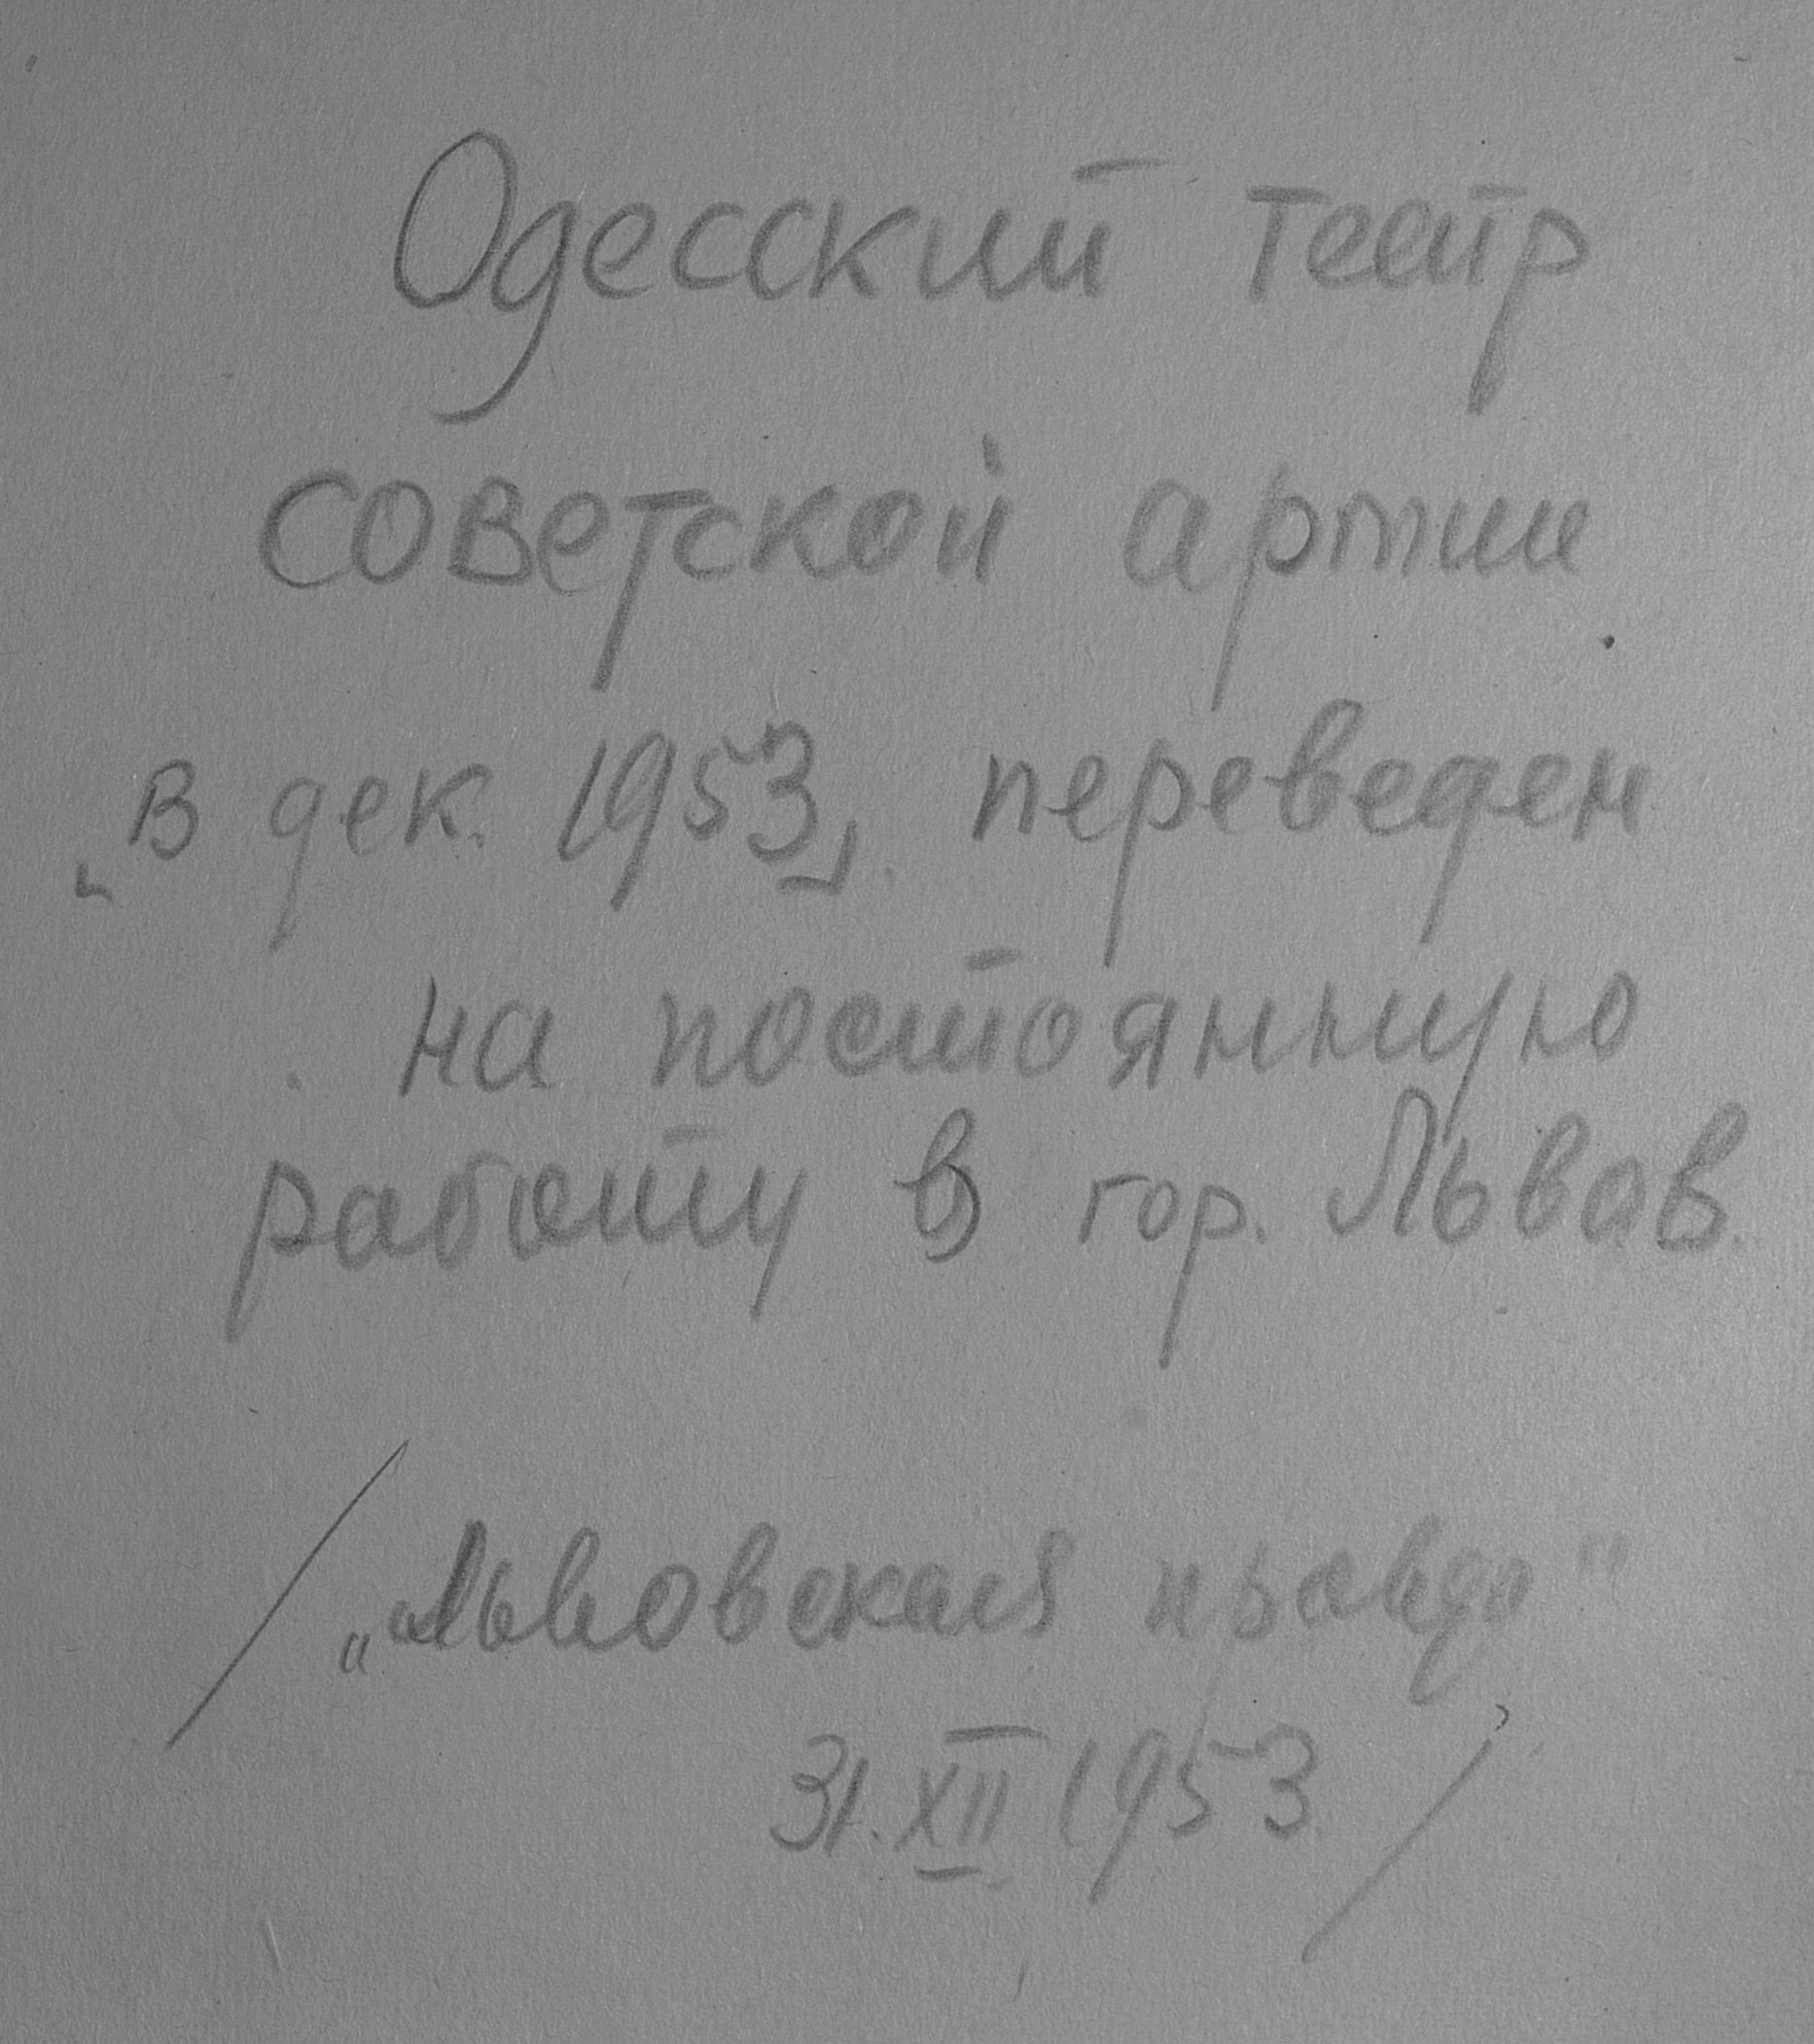 Одесский театр
советской армии
„В дек. 1953, переведен
на постоянную
работу в гор. Львов.
/„Львовская правда"
31. XII 1953/